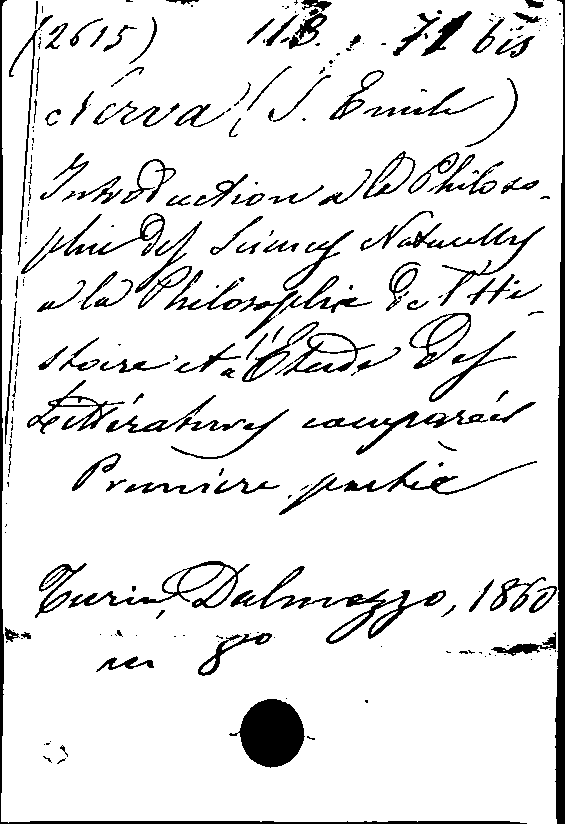 (2615) 113. 71 bis
Nerva (J. Emile)
Introduction a la Philoso-
phie des Sciences Naturelles
a la Philosophie de l'Hi-
stoire et a l'Etude des
Littératures comparées
Première partie
Turin, Dalmazzo, 1860
in 8vo